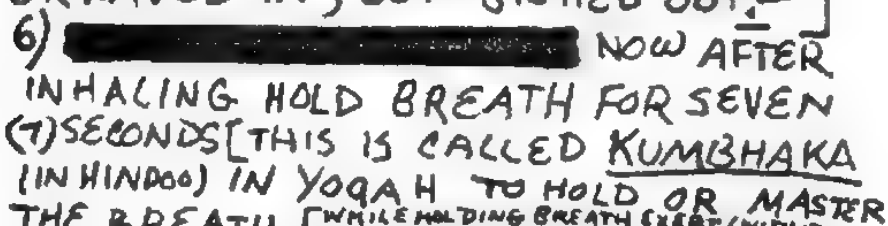 6) NOW AFTER
INHALING HOLD BREATH FOR SEVEN
(7) SECONDS [THIS IS CALLED KUMBHAKA
(IN HINDOO) IN YOGAH TO HOLD OR MASTER
THE BREATH [WHILE HOLDING BREATH